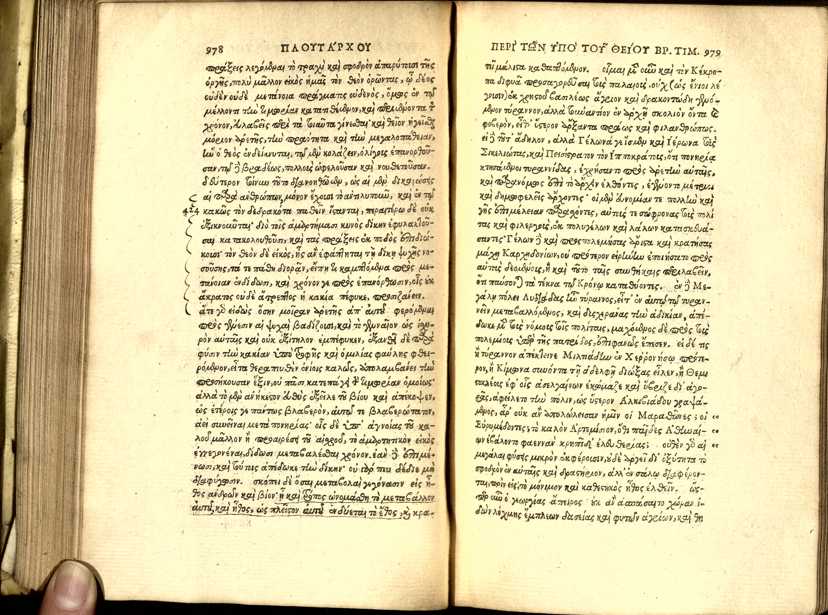 978 ΠΛΟΥΤΑΡΧΟΥ
πράξεις λεγόμεναι τὸ τραχὺ καὶ σφοδρὸν ἀπαρύτοισι τῆς
ὀργῆς, πολὺ μᾶλλον εἰκὸς ἡμᾶς τὸν θεὸν ὁρῶντας, ᾧ δέος
οὐδὲν οὐδὲ μετάνοια πράγματος οὐδενὸς, ὅμως ἐν τῷ
μέλλοντι τὴν τιμωρίαν κατατιθέμενον, καὶ περιμένοντα τὸν
χρόνον, εὐλαβεῖς περὶ τὰ τοιαῦτα γίνεσθαι, καὶ θεῖον ἡγεῖσθαι
μόριον ἀρετῆς, τὴν πραότητα καὶ τὴν μεγαλοπάθειαν,
ἣν ὁ θεὸς ἐνδείκνυται, τῷ μὲν κολάζειν, ὀλίγους ἐπανορθοῦ-
σαν, τῷ δὲ βραδέως, πολλοὺς ὠφελοῦσαν καὶ νουθετοῦσαν.
δεύτερον τοίνυν τοῦτο διανοηθῶμεν, ὡς αἱ μὲν δικαιώσεις
αἱ παρὰ ἀνθρώπων, μόνον ἔχουσι τὸ ἀντιλυποῦν, καὶ ἐν τῷ
κακῶς τὸν δεδρακότα παθεῖν ἵστανται, περαιτέρω δὲ οὐκ
ἐξικνοῦνται· διὸ τοῖς ἁμαρτήμασι κυνὸς δίκην ἐφυλακτοῦ-
σαι κατακολουθοῦσιν, καὶ τὰς πράξεις ἐκ ποδὸς ἐπιδιώ-
κουσι· τὸν θεὸν δὲ εἰκὸς, ἧς ἂν ἐφάπτηται τῇ δίκῃ ψυχῆς νο-
σούσης, τά τε πάθη διορᾶν, εἴ πῃ τι καμπτόμενα πρὸς με-
τάνοιαν ἐνδίδωσι, καὶ χρόνον γε πρὸς ἐπανόρθωσιν, οἷς οὐκ
ἄκρατος οὐδὲ ἄτρεπτος ἡ κακία πέφυκε, προσιζάνειν.
ἅτε γὰρ εἰδὼς ὅσην μοῖραν ἀρετῆς ἀπ' αὐτοῦ φερόμεναι
πρὸς γένεσιν αἱ ψυχαὶ βαδίζουσι, καὶ τὸ γενναῖον ὡς ἰσχυ-
ρὸν αὐταῖς καὶ οὐκ ἐξίτηλον ἐμπέφυκεν, ἐξανθεῖ δὲ παρὰ
φύσιν τὴν κακίαν ὑπὸ τροφῆς καὶ ὁμιλίας φαύλης φθει-
ρόμενον, εἶτα θεραπευθὲν ἐνίοις καλῶς, ἀπολαμβάνει τὴν
προσήκουσαν ἕξιν, οὐ πᾶσι κατεπείγει τὴν τιμωρίαν ὁμοίως·
ἀλλὰ τὸ μὲν ἀνήκεστον εὐθὺς ἐξεῖλε τοῦ βίου καὶ ἀπέκοψεν,
ὡς ἑτέροις γε πάντως βλαβερὸν, αὑτῷ τε βλαβερώτατον,
ἀεὶ συνεῖναι μετὰ πονηρίας· οἷς δὲ ὑπ' ἀγνοίας τοῦ κα-
λοῦ μᾶλλον ἢ προαιρέσει τοῦ αἰσχροῦ, τὸ ἁμαρτητικὸν εἰκὸς
ἐγγεγονέναι, δίδωσι μεταβαλέσθαι χρόνον. ἐὰν δὲ ἐπιμέ-
νωσι, καὶ τούτοις ἀπέδωκε τὴν δίκην· οὐ γάρ που δέδιε μὴ
διαφύγωσιν. σκόπει δὲ ὅσαι μεταβολαὶ γεγόνασιν εἰς ἦ-
θος ἀνδρῶν καὶ βίον· ᾗ καὶ τρόπος ὠνομάσθη τὸ μεταβάλλον
αὐτοῦ, καὶ ἦθος, ὡς πλεῖστον αὐτοῦ ἐνδύεται τὸ ἔθος, καὶ κρα-
ΠΕΡΙ ΤΩΝ ΥΠΟ ΤΟΥ ΘΕΙΟΥ ΒΡ. ΤΙΜ. 979
τεῖ μάλιστα καθαπτόμενον. οἶμαι μὲν οὖν καὶ τὸν Κέκρο-
πα διφυᾶ προσαγορεῦσαι τοὺς παλαιοὺς, οὐχ ὡς ἔνιοι λέ-
γουσιν, ἐκ χρηστοῦ βασιλέως ἄγριον καὶ δρακοντώδη γενό-
μενον τύραννον, ἀλλὰ τοὐναντίον ἐν ἀρχῇ σκολιὸν ὄντα καὶ
φοβερὸν, εἶθ' ὕστερον ἄρξαντα πράως καὶ φιλανθρώπως.
εἰ δὲ τοῦτ' ἄδηλον, ἀλλὰ Γέλωνά γε ἴσμεν καὶ Ἱέρωνα τοὺς
Σικελιώτας, καὶ Πεισίστρατον τὸν Ἱπποκράτους, ὅτι πονηρίᾳ
κτησάμενοι τυραννίδας, ἐχρήσαντο πρὸς ἀρετὴν αὐταῖς,
καὶ παρανόμως ἐπὶ τὸ ἄρχειν ἐλθόντες, ἐγένοντο μέτριοι
καὶ δημωφελεῖς ἄρχοντες· οἱ μὲν εὐνομίαν τε πολλὴν καὶ
γῆς ἐπιμέλειαν παρασχόντες, αὐτούς τε σώφρονας τοὺς πολί-
τας καὶ φιλεργοὺς, ἐκ πολυγέλων καὶ λάλων κατασκευά-
σαντες· Γέλων δὲ καὶ προπολεμήσας ἄριστα καὶ κρατήσας
μάχῃ Καρχηδονίων, οὐ πρότερον εἰρήνην ἐποιήσατο πρὸς
αὐτοὺς δεομένους, ἢ καὶ τοῦτο ταῖς συνθήκαις περιλαβεῖν,
ὅτι παύσονται τὰ τέκνα τῷ Κρόνῳ καταθύοντες. ἐν δὲ Με-
γάλῃ πόλει Λυδιάδας ἦν τύραννος, εἶτ' ἐν αὐτῷ τῷ τυραν-
νεῖν μεταβαλλόμενος, καὶ δυσχεράνας τὴν ἀδικίαν, ἀπέ-
δωκε μὲν τοὺς νόμους τοῖς πολίταις, μαχόμενος δὲ πρὸς τοὺς
πολεμίους ὑπὲρ τῆς πατρίδος, ἐπιφανῶς ἔπεσεν. εἰ δέ τις
ἢ τύραννον ἀπέκτεινε Μιλτιάδην ἐν Χερρονήσῳ πρότε-
ρον, ἢ Κίμωνα συνόντα τῇ ἀδελφῇ διώξας εἷλεν, ἢ Θεμι-
στοκλέους ἐφ' οἷς ἀσελγαίνων ἐκώμαζε καὶ ὕβριζε δι' ἀγο-
ρᾶς, ἀφείλετο τὴν πόλιν, ὡς ὕστερον Ἀλκιβιάδου γραψά-
μενος, ἆρ' οὐκ ἂν ἀπολώλεισαν ἡμῖν οἱ Μαραθῶνες; οἱ
Εὐρυμέδοντες; τὸ καλὸν Ἀρτεμίσιον, ὅθι παῖδες Ἀθηναί-
ων ἐβάλοντο φαεννὰν κρηπῖδ' ἐλευθερίας; οὐθὲν γὰρ αἱ
μεγάλαι φύσεις μικρὸν ἐκφέρουσιν, οὐδὲ ἀργεῖ δι' ὀξύτητα τὸ
σφοδρὸν ἐν αὐταῖς καὶ δραστήριον, ἀλλ' ἐν σάλῳ διαφέρον-
ται, πρὶν εἰς τὸ μόνιμον καὶ καθεστηκὸς ἦθος ἐλθεῖν. ὥσ-
περ οὖν ὁ γεωργίας ἄπειρος οὐκ ἂν ἀσπάσαιτο χώραν ἰ-
δὼν λόχμης ἔμπλεων δασείας καὶ φυτῶν ἀγρίων, καὶ θη